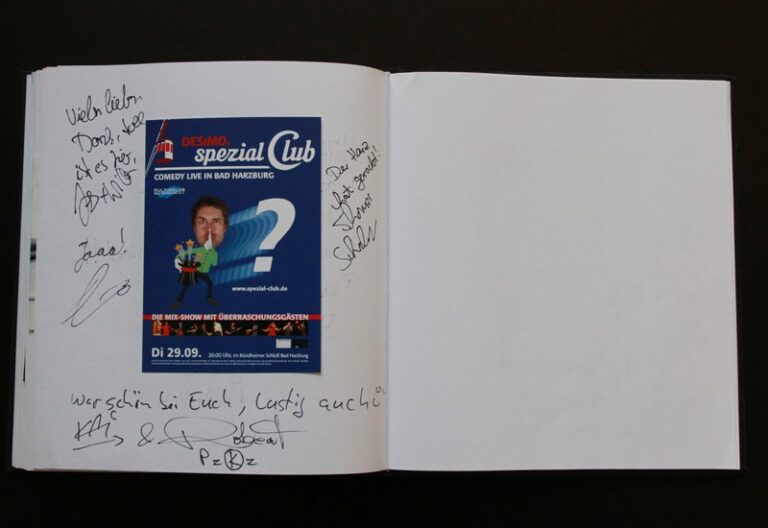 Vielen lieben
Dank, toll
ist es hier
Jaaa!
DESiMOs
spezial Club
COMEDY LIVE IN BAD HARZBURG
?
www.spezial-club.de
DIE MIX-SHOW MIT ÜBERRASCHUNGSGÄSTEN
Di 29.09.
20.00 Uhr, im Bündheimer Schloß Bad Harzburg
Der Harz
hat gerockt!!
Thomas
War schön bei Euch, lustig auch
KAi & Robert
PzKz